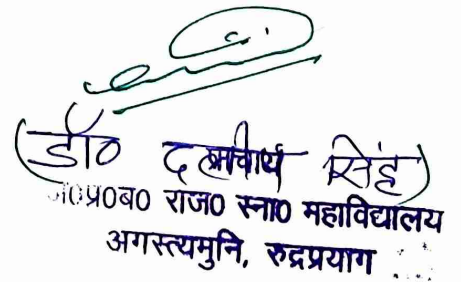 (डॉ० सिंह)
अ०प्र०ब० राज० स्ना० महाविद्यालय
अगस्त्यमुनि, रुद्रप्रयाग